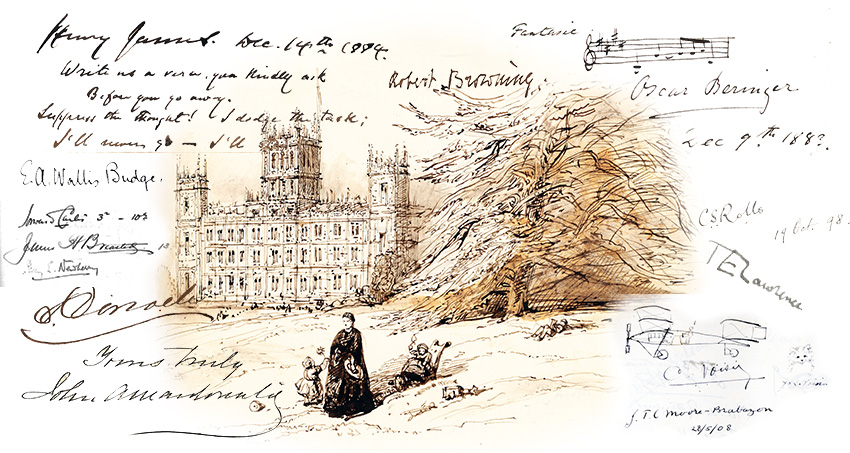 Henry James. Dec. 14th 1884.
Write us a verse you kindly ask
Before you go away.
Suppress the thought! I dodge the task;
I'll never go — I'll
Robert Browning.
Fantasie
Oscar Beringer
Dec 9th 1883.
E.A. Wallis Budge.
Howard Carter
James H Breasted
Newberry
Disraeli
Yours truly
John A Macdonald
C S Rolls
19 Oct. 98.
T E Lawrence
J. T. C Moore-Brabazon
28/5/08